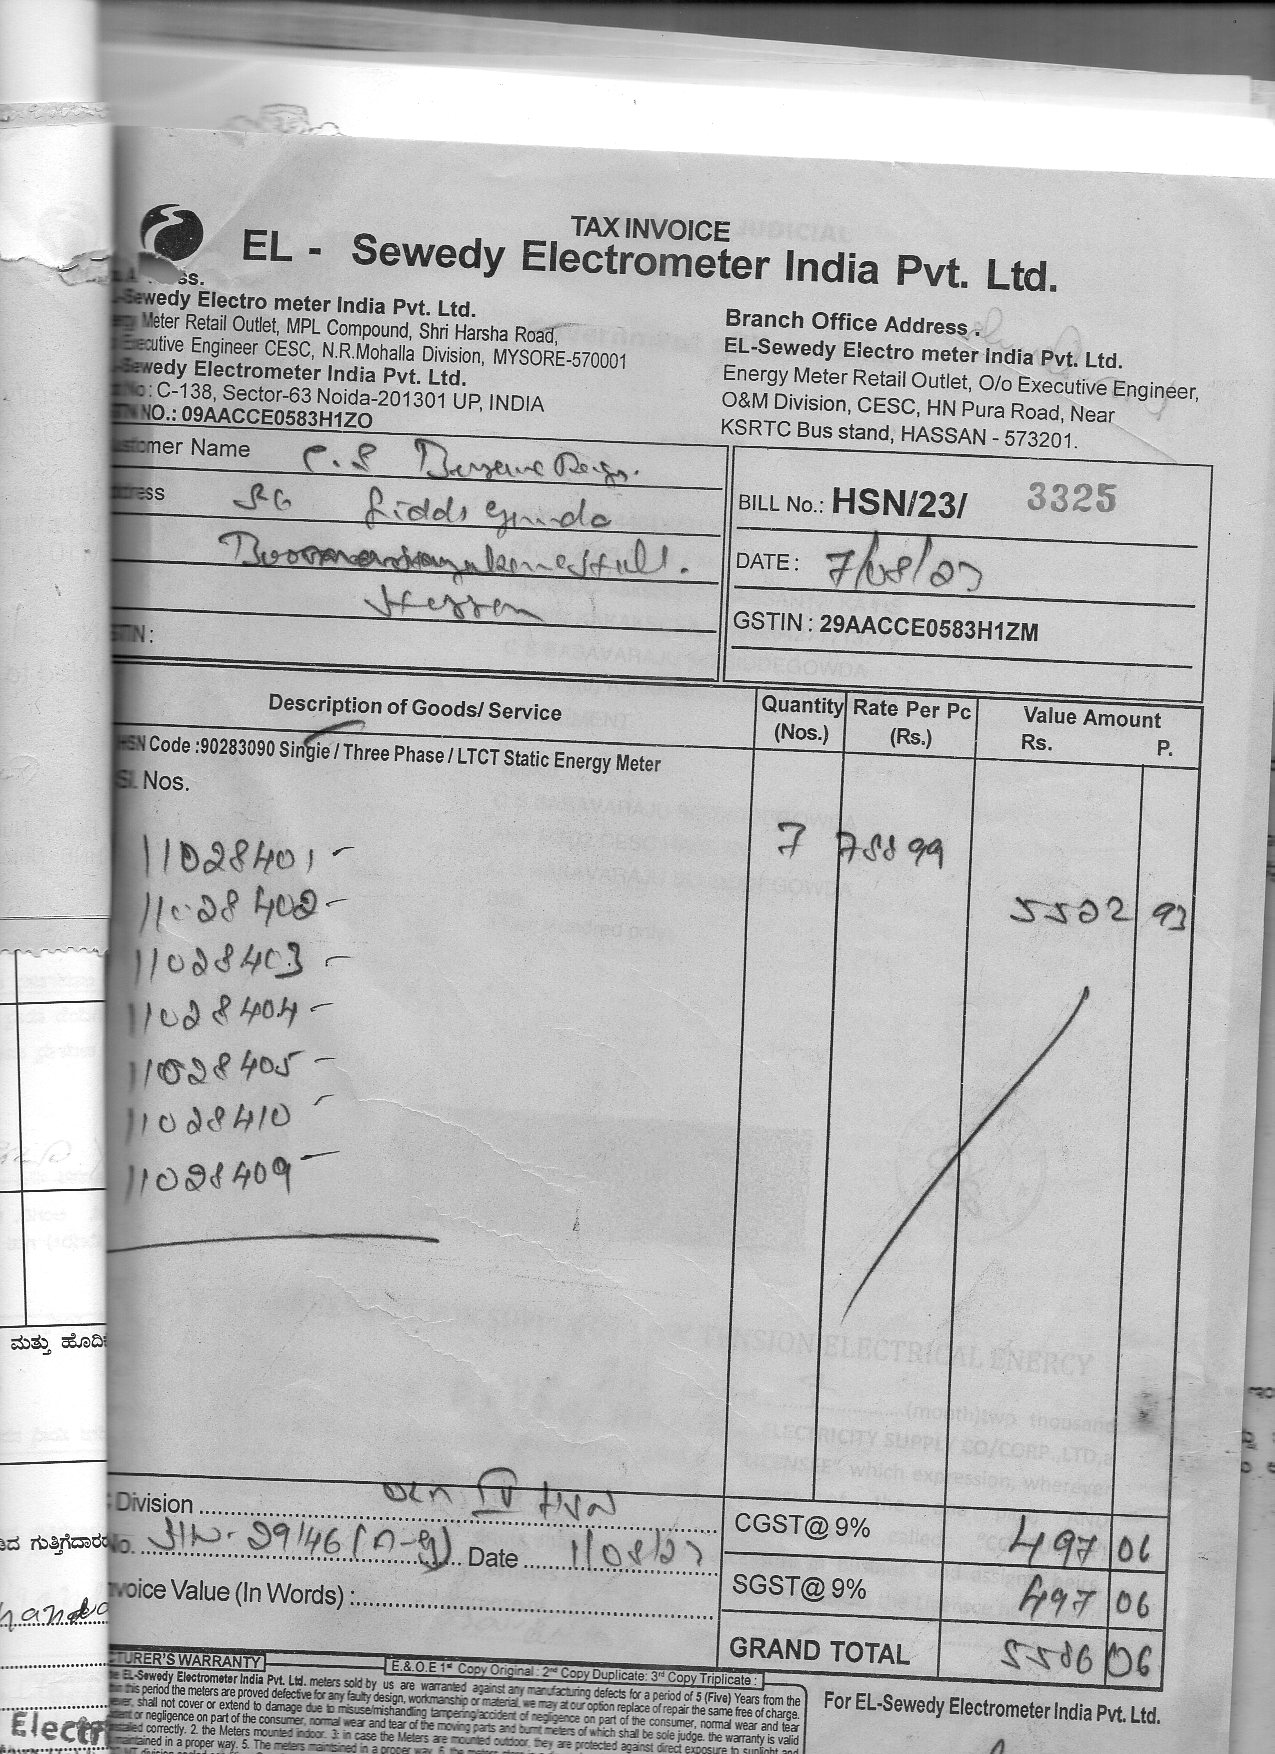 TAX INVOICE
EL - Sewedy Electrometer India Pvt. Ltd.
ss.
Sewedy Electro meter India Pvt. Ltd.
Meter Retail Outlet, MPL Compound, Shri Harsha Road,
Executive Engineer CESC, N.R.Mohalla Division, MYSORE-570001
Sewedy Electrometer India Pvt. Ltd.
No: C-138, Sector-63 Noida-201301 UP, INDIA
NO.: 09AACCE0583H1ZO
Branch Office Address :
EL-Sewedy Electro meter India Pvt. Ltd.
Energy Meter Retail Outlet, O/o Executive Engineer,
O&M Division, CESC, HN Pura Road, Near
KSRTC Bus stand, HASSAN - 573201.
Customer Name C.S
Address
Hassan
BILL No.: HSN/23/ 3325
DATE : 7/08/23
GSTIN : 29AACCE0583H1ZM
Description of Goods/ Service Quantity (Nos.) Rate Per Pc (Rs.) Value Amount Rs. P.
HSN Code :90283090 Single / Three Phase / LTCT Static Energy Meter
Sl. Nos.
11028401 - 7 788 99
11028402 - 5522 93
11028403 -
11028404 -
11028405 -
11028410 -
11028409 -
Division IV
No. 29146 Date 1/08/23
Invoice Value (In Words) :
CGST@ 9% 497 06
SGST@ 9% 497 06
GRAND TOTAL 06
TURER'S WARRANTY
E.& O.E 1st Copy Original : 2nd Copy Duplicate: 3rd Copy Triplicate :
EL-Sewedy Electrometer India Pvt. Ltd. meters sold by us are warranted against any manufacturing defects for a period of 5 (Five) Years from the
this period the meters are proved defective for any faulty design, workmanship or material, we may at our option replace of repair the same free of charge.
shall not cover or extend to damage due to misuse/mishandling tampering/accident of negligence on part of the consumer, normal wear and tear
or negligence on part of the consumer, normal wear and tear of the moving parts and burnt meters of which shall be sole judge. the warranty is valid
correctly. 2. the Meters mounted indoor. 3. in case the Meters are mounted outdoor, they are protected against direct exposure to sunlight and
in a proper way. 5. The meters maintained in a proper way.
For EL-Sewedy Electrometer India Pvt. Ltd.
ಮತ್ತು ಹೊದಿ
ಗುತ್ತಿಗೆದಾರ
Electr